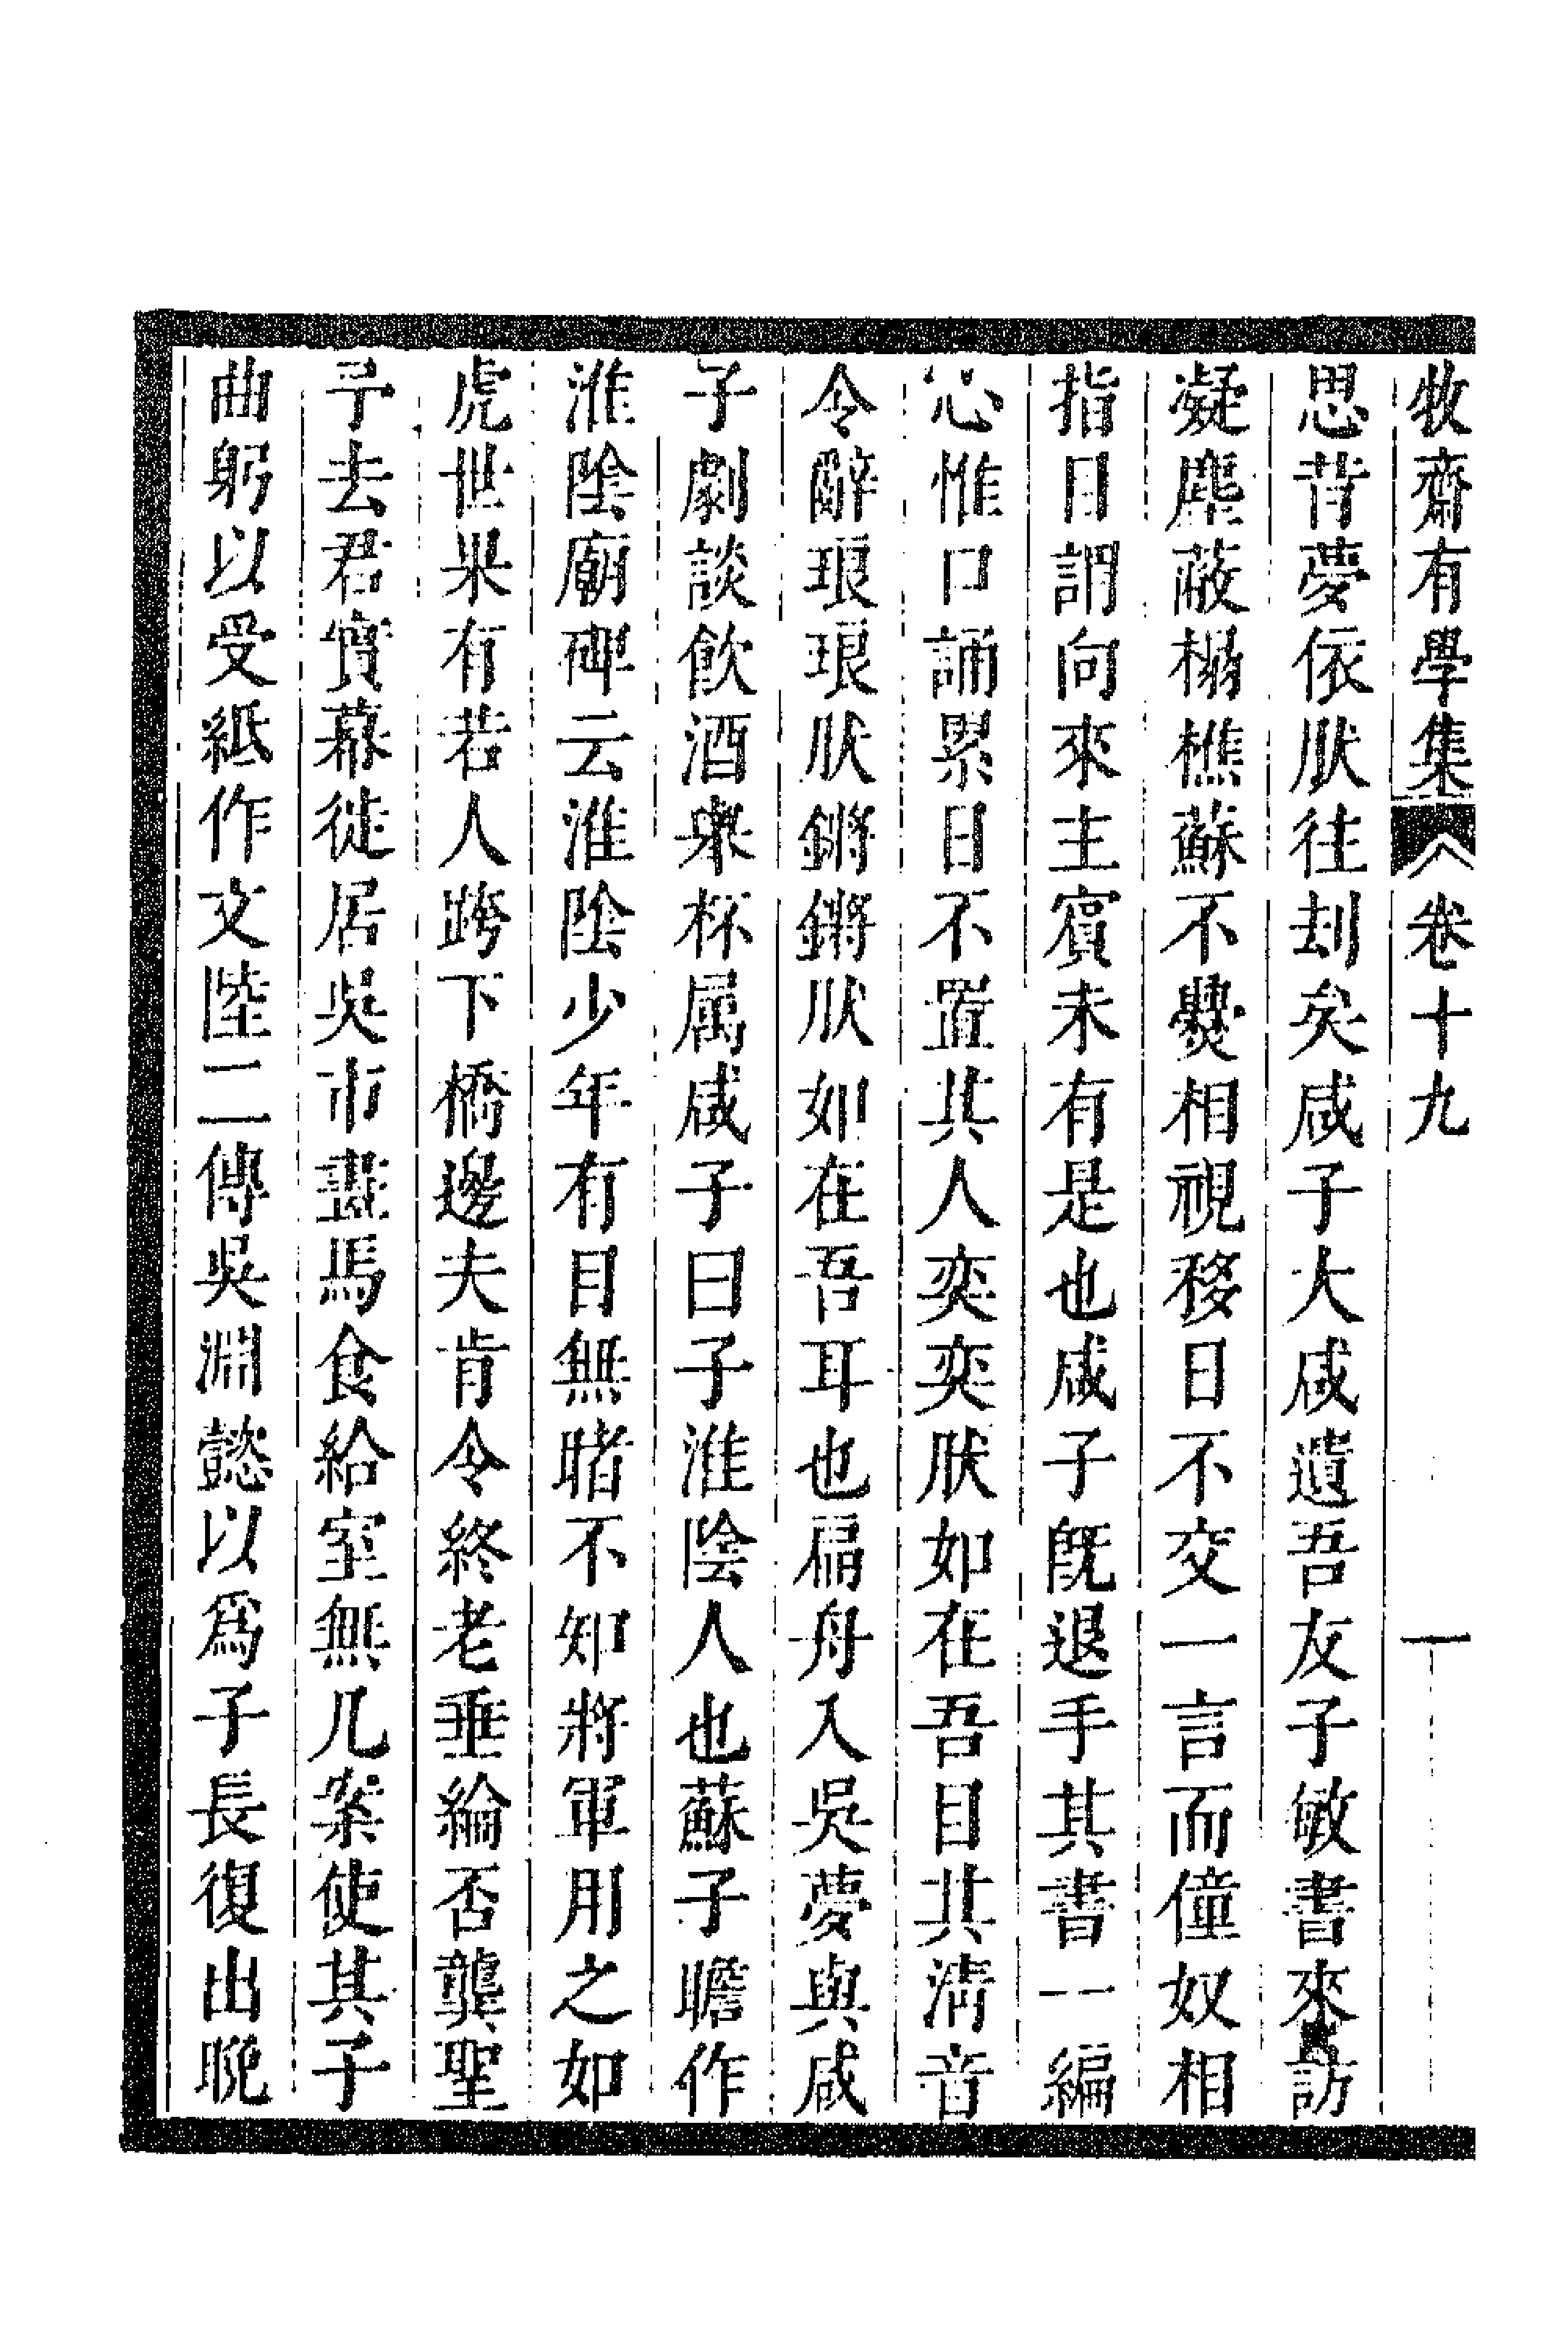 牧齋有學集 卷十九 一
思昔夢依肰往刦矣咸子大咸遺吾友子敏書來訪
凝塵蔽榻樵蘇不爨相視移日不交一言而僮奴相
指目謂向來主賓未有是也咸子旣退手其書一編
心惟口誦累日不置其人奕奕肰如在吾目其淸音
令辭琅琅肰鏘鏘肰如在吾耳也扁舟入吳夢與咸
子劇談飮酒舉杯屬咸子曰子淮陰人也蘇子瞻作
淮陰廟碑云淮陰少年有目無睹不知將軍用之如
虎世果有若人跨下橋邊夫肯令終老垂綸否龔聖
予去君實幕徙居吳市畫馬食給室無几案使其子
曲躬以受紙作文陸二傳吳淵懿以爲子長復出晚